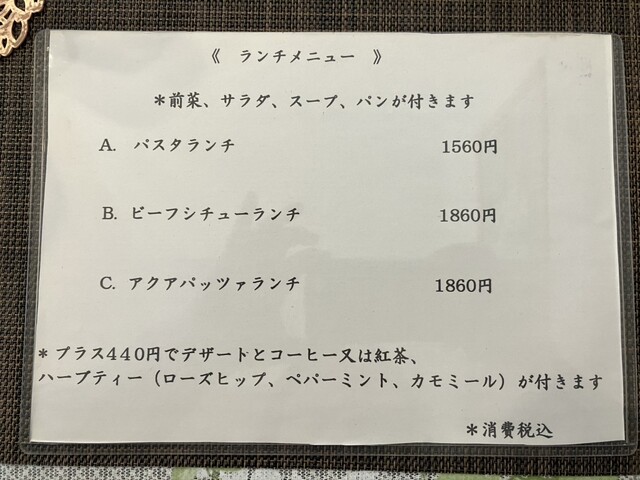 《 ランチメニュー 》
＊前菜、サラダ、スープ、パンが付きます
A. パスタランチ 1560円
B. ビーフシチューランチ 1860円
C. アクアパッツァランチ 1860円
＊プラス440円でデザートとコーヒー又は紅茶、
ハーブティー（ローズヒップ、ペパーミント、カモミール）が付きます
＊消費税込